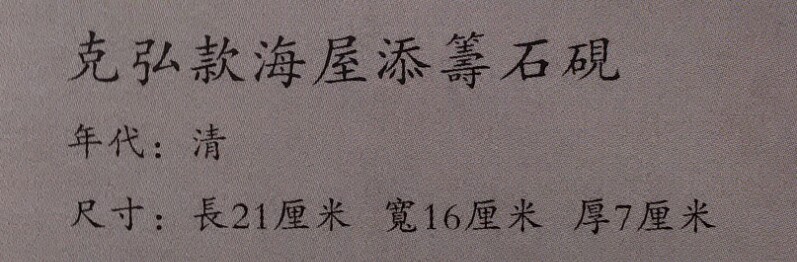 克弘款海屋添籌石硯
年代：清
尺寸：長21厘米 寬16厘米 厚7厘米